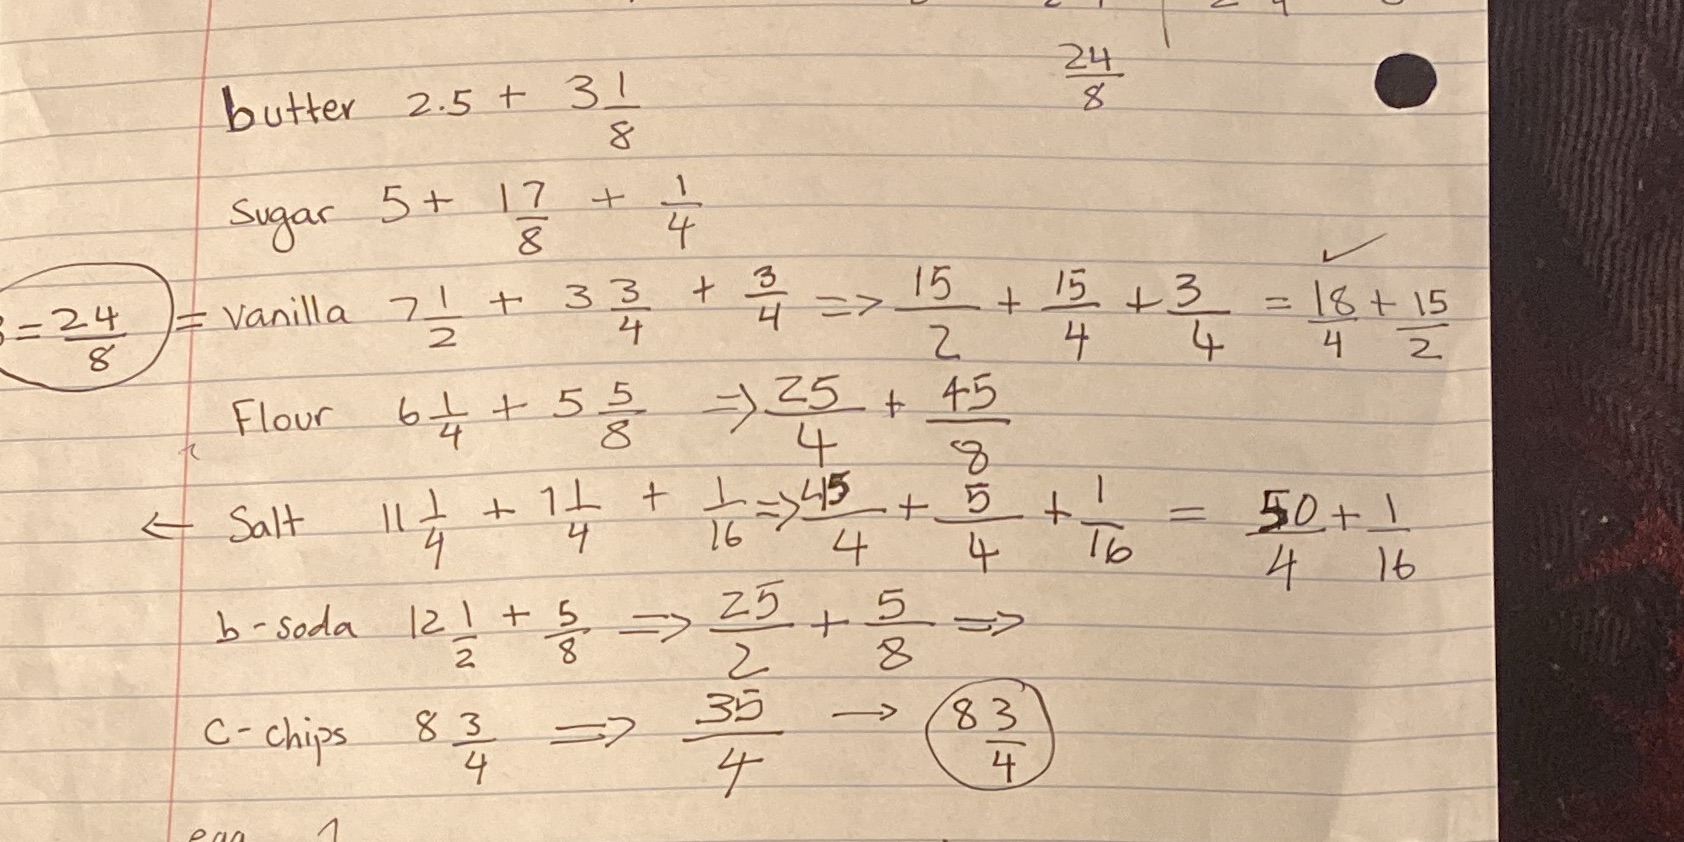 24/8
butter 2.5 + 3 1/8
Sugar 5 + 1 7/8 + 1/4
= 24/8 = vanilla 7 1/2 + 3 3/4 + 3/4 => 15/2 + 15/4 + 3/4 = 18/4 + 15/2 ✓
Flour 6 1/4 + 5 5/8 => 25/4 + 45/8
← Salt 11 1/4 + 1 1/4 + 1/16 => 45/4 + 5/4 + 1/16 = 50/4 + 1/16
b-soda 12 1/2 + 5/8 => 25/2 + 5/8 =>
C-chips 8 3/4 => 35/4 → 8 3/4
egg 1